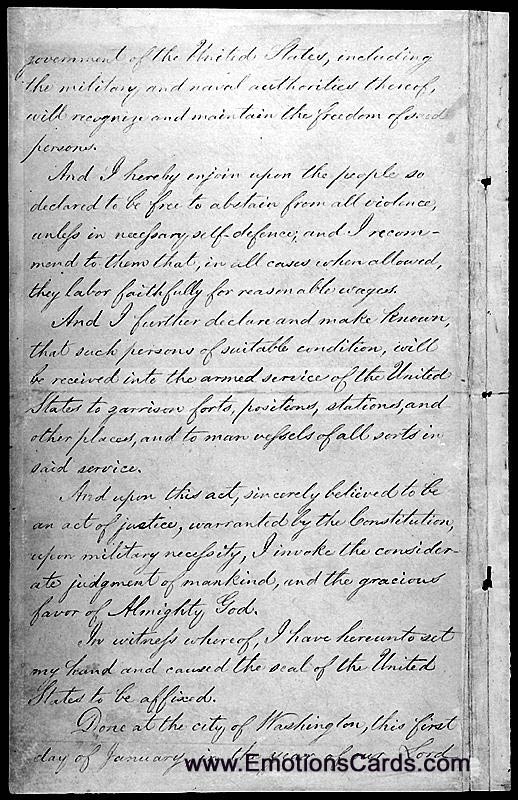 government of the United States, including
the military and naval authorities thereof,
will recognize and maintain the freedom of said
persons.
And I hereby enjoin upon the people so
declared to be free to abstain from all violence,
unless in necessary self-defence; and I recom-
mend to them that, in all cases when allowed,
they labor faithfully for reasonable wages.
And I further declare and make known,
that such persons of suitable condition, will
be received into the armed service of the United
States to garrison forts, positions, stations, and
other places, and to man vessels of all sorts in
said service.
And upon this act, sincerely believed to be
an act of justice, warranted by the Constitution,
upon military necessity, I invoke the consider-
ate judgment of mankind, and the gracious
favor of Almighty God.
In witness whereof, I have hereunto set
my hand and caused the seal of the United
States to be affixed.
Done at the city of Washington, this first
day of January, in the year of our Lord
www.EmotionsCards.com